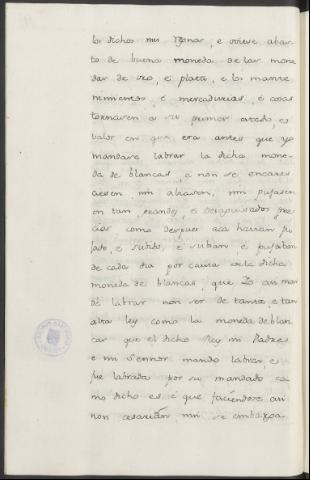 los dichos mis Regnos, e oviese abas-
to de buena moneda de las mone
das de oro, e plata, e los mante
nimientos, e mercadurias, e cosas
tornasen a su primer estado, e
valor en que era antes que yo
mandase labrar la dicha mone-
da de blancas, e non se encares-
ciesen nin alzasen, nin pujasen
en tan grandes, e desaguisados pre
cios, como despues aca havian pu
jado, e subido, e subian e pujaban
de cada dia por causa de la dicha
moneda de blancas, que Yo asi man
dé labrar non ser de tanta, e tan
alta ley como la moneda de blan
cas que el dicho Rey mi Padre
e mi Sennor mando labrar, e
fue labrada por su mandado co
mo dicho es, e que faciendose asi
non cesarian nin se embarga